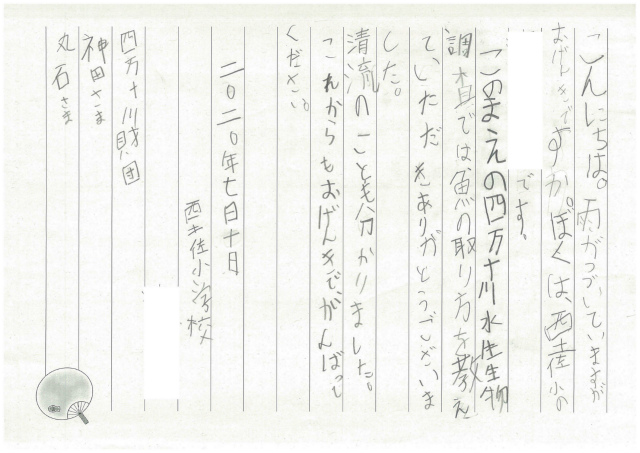 こんにちは。雨がつづいていますが
おげんきですか。ぼくは、西土佐小の
です。
このまえの四万十川水生生物
調査では魚の取り方を教え
ていただきありがとうございま
した。
清流のことも分かりました。
これからもおげんきで、がんばって
ください。
二〇二〇年七日十日
西土佐小学校
四万十川財団
神田さま
丸石さま